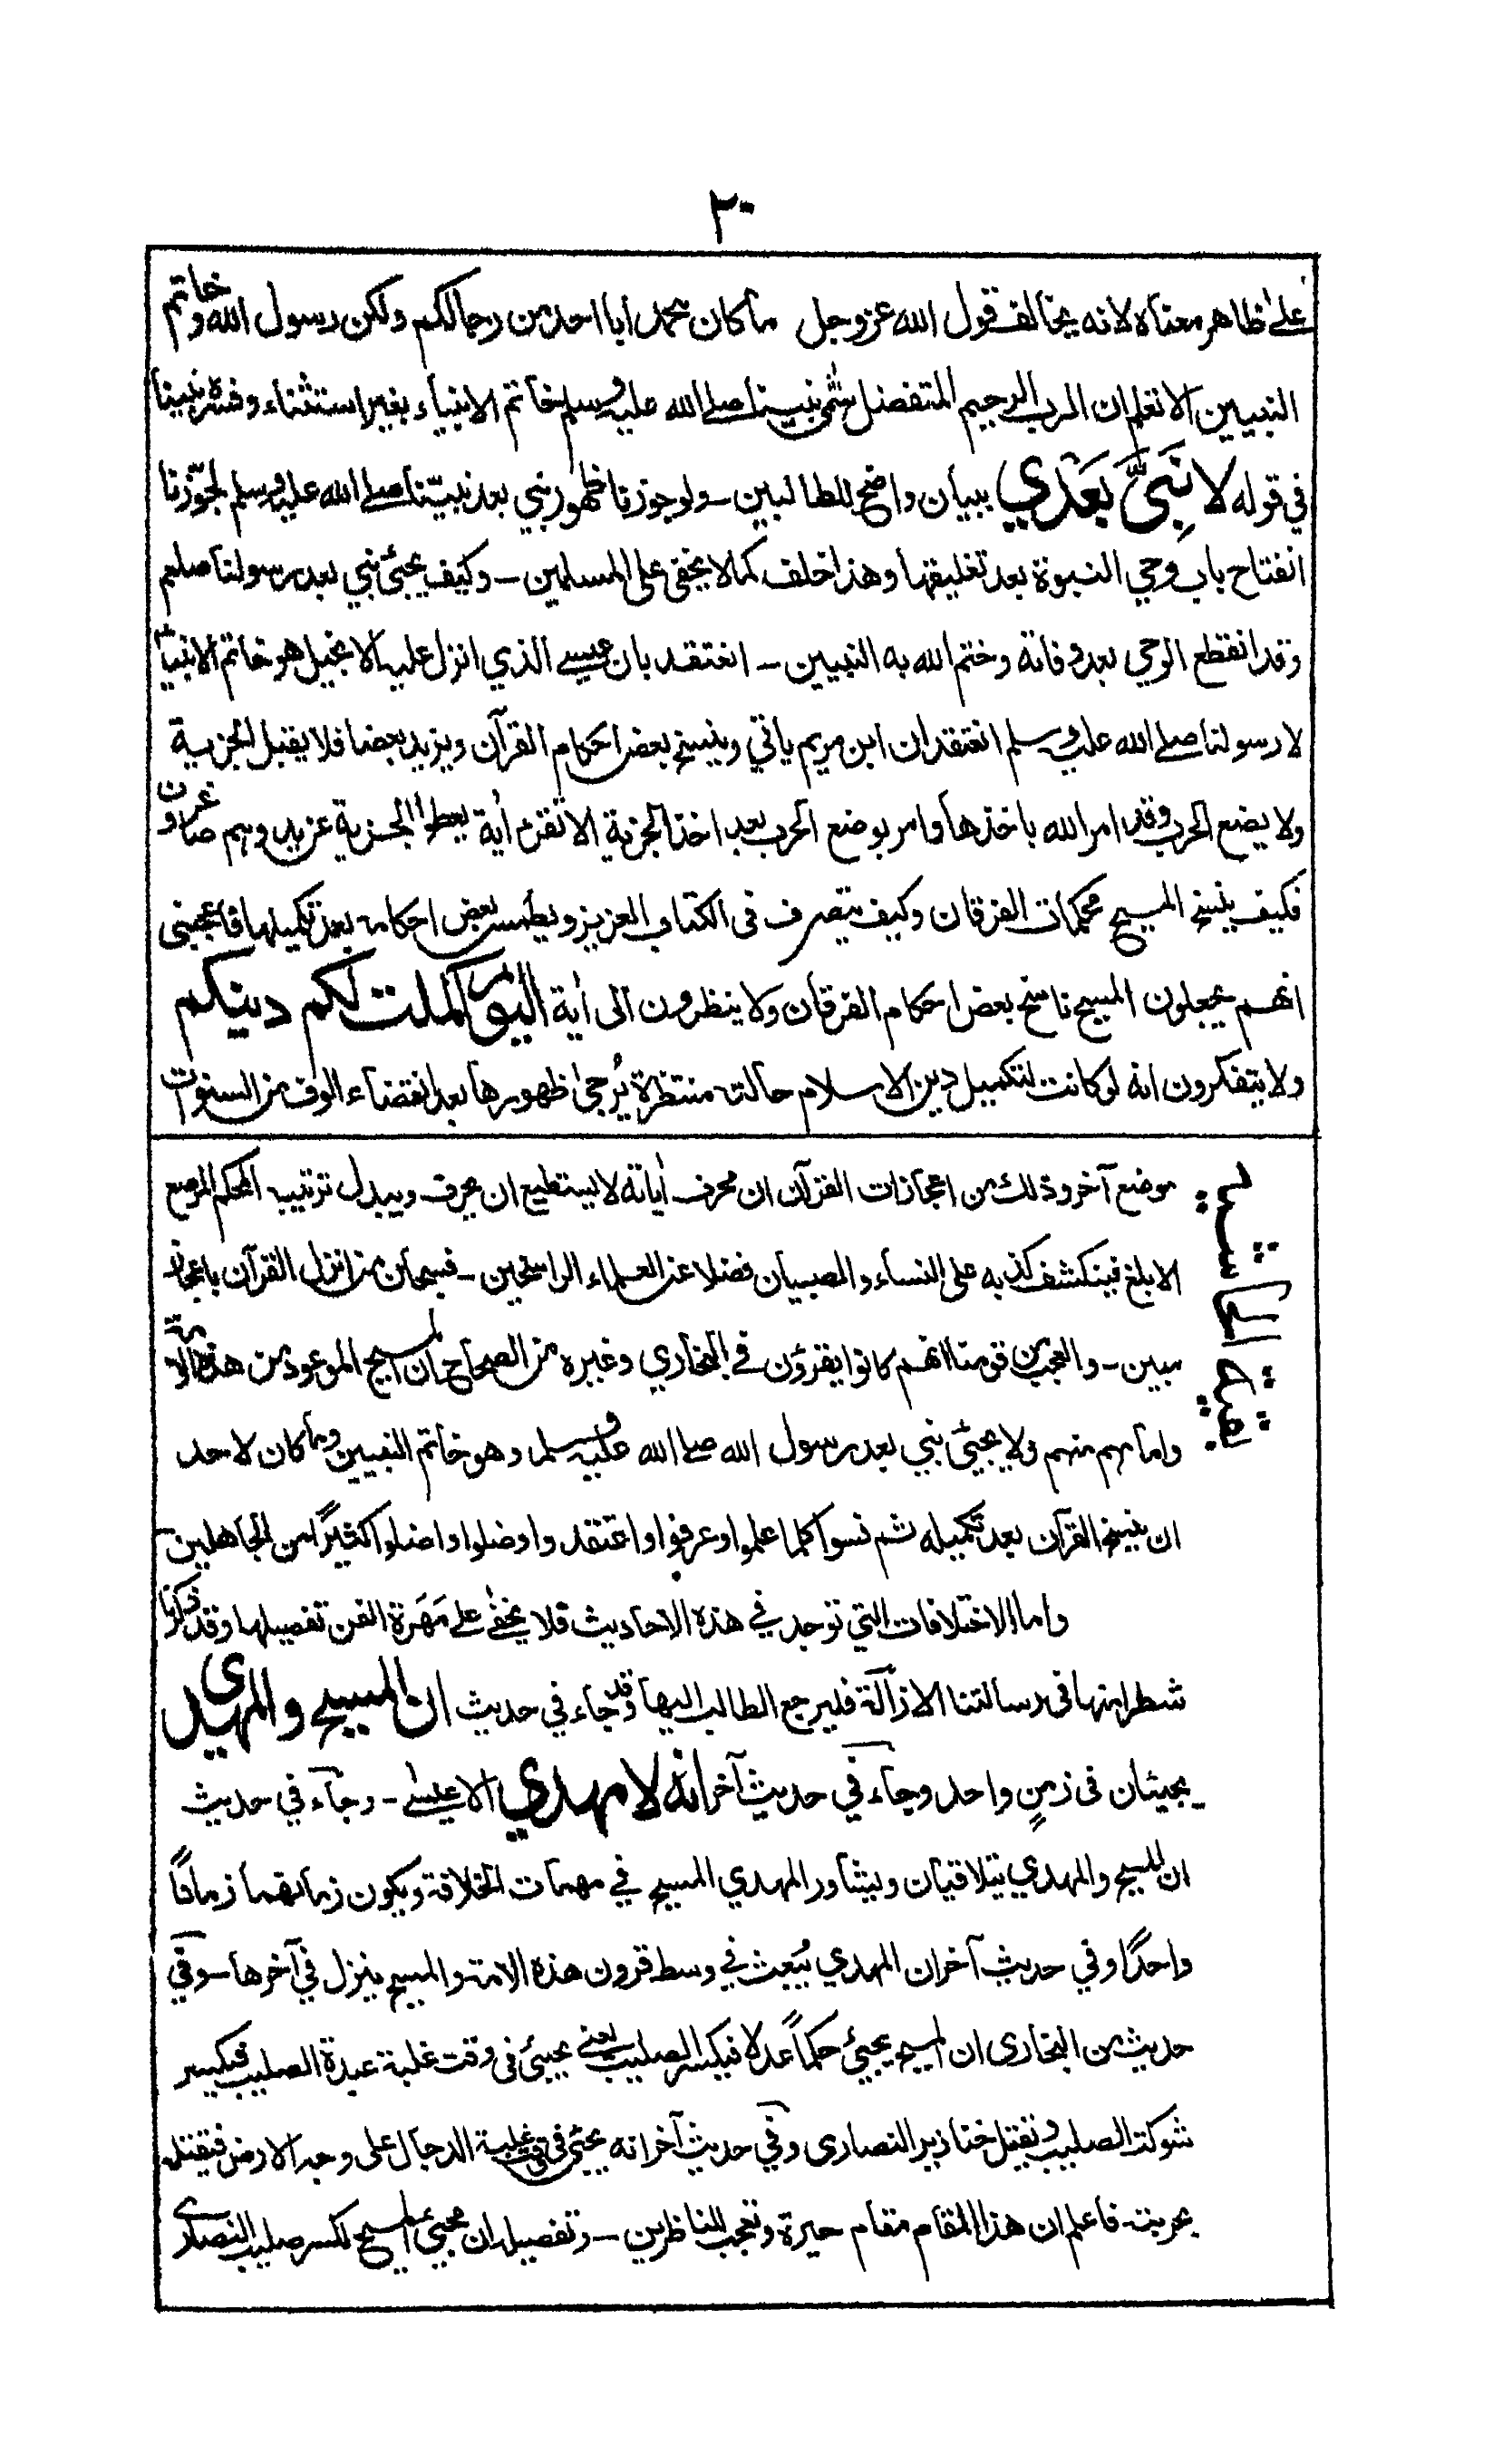 ٢٠
على ظاهر معناه لانه يخالف قول الله عز وجل ما كان محمد ابا احد من رجالكم ولكن رسول الله وخاتم
النبيين الا تعلم ان الرب الرحيم المتفضل سمّى نبينا صلے الله عليه وسلم خاتم الانبياء بغير استثناء وفسّره نبينا
في قوله لا نَبِيَّ بَعْدِي ببيان واضح للطالبين – ولو جوزنا ظهور نبي بعد نبيّنا صلے الله عليه وسلم لجوّزنا
انفتاح باب وحي النبوة بعد تغليقها وهذا خلف كما لا يخفى على المسلمين – وكيف يجيئ نبي بعد رسولنا صلعم
وقد انقطع الوحي بعد وفاته وختم الله به النبيين – انعتقد بان عيسے الذي انزل عليه الانجيل هو خاتم الانبياء
لا رسولنا صلے الله عليه وسلم انعتقد ان ابن مريم ياتي وينسخ بعض احكام القرآن ويزيد بعضا فلا يقبل الجزية
ولا يضع الحرب وقد امر الله باخذها وامر بوضع الحرب بعد اخذ الجزية الا تقرء اٰية يعطوا الجزية عن يد وهم صاغرون
فكيف ينسخ المسيح محكمات الفرقان وكيف يتصرف فى الكتاب العزيز ويطمس بعض احكامه بعد تكميلها فاعجبنى
انهم يجعلون المسيح ناسخ بعض احكام الفرقان ولا ينظرون الى اٰية اليوم اكملت لكم دينكم
ولا يتفكرون انه لو كانت لتكميل دين الاسلام حالة منتظرة يُرجى ظهورها بعد انقضاء الوف من السنوات
بقية الحاشية
موضع آخر وذلك من اعجازات القرآن ان محرف اٰياته لا يستطيع ان يحرف ويبدل ترتيب المحكم المرصع
الابلغ فينكشف كذبه على النساء والصبيان فضلا عن العلماء الراسخين – فسبحان من انزل القرآن باعجاز
مبين – والعجب من قومنا انهم كانوا يقرؤن في البخاري وغيره من الصحاح ان المسيح الموعود من هذه الامة
وامامهم منهم ولا يجيئ نبي بعد رسول الله صلے الله عليه وسلم وهو خاتم النبيين وما كان لاحد
ان ينسخ القرآن بعد تكميله ثم نسوا كلما علموا وعرفوا واعتقدوا وضلوا واضلوا كثيرًا من الجاهلين –
واما الاختلافات التي توجد في هذه الاحاديث فلا يخفى على مَهَرة الفن تفصيلها وقد ذكرنا
شطرا منها فى رسالتنا الازالة فليرجع الطالب اليها وقد جاء في حديث ان المسيح والمهدى
يجيئان فى زمنٍ واحد وجاء في حديث آخر انه لا مهدي الا عيسےٰ – وجاء في حديث
ان المسيح والمهدي يتلاقيان ويشاور المهدي المسيح في مهمات الخلافة ويكون زمانهما زمانًا
واحدًا وفي حديث آخر ان المهدي يُبعث في وسط قرون هذه الامة والمسيح ينزل في آخرها – وفي
حديث من البخارى ان المسيح يجيئ حكمًا عدلا فيكسر الصليب يعني يجيئ فى وقت غلبة عبدة الصليب فيكسر
شوكة الصليب ويقتل خنازير النصارى وفي حديث آخر انه يجيئ فى وقت غلبة الدجال على وجه الارض فيقتله
بحربته – فاعلم ان هذا المقام مقام حيرة وتعجب للناظرين – وتفصيله ان مجيئ المسيح لكسر صليب النصارى